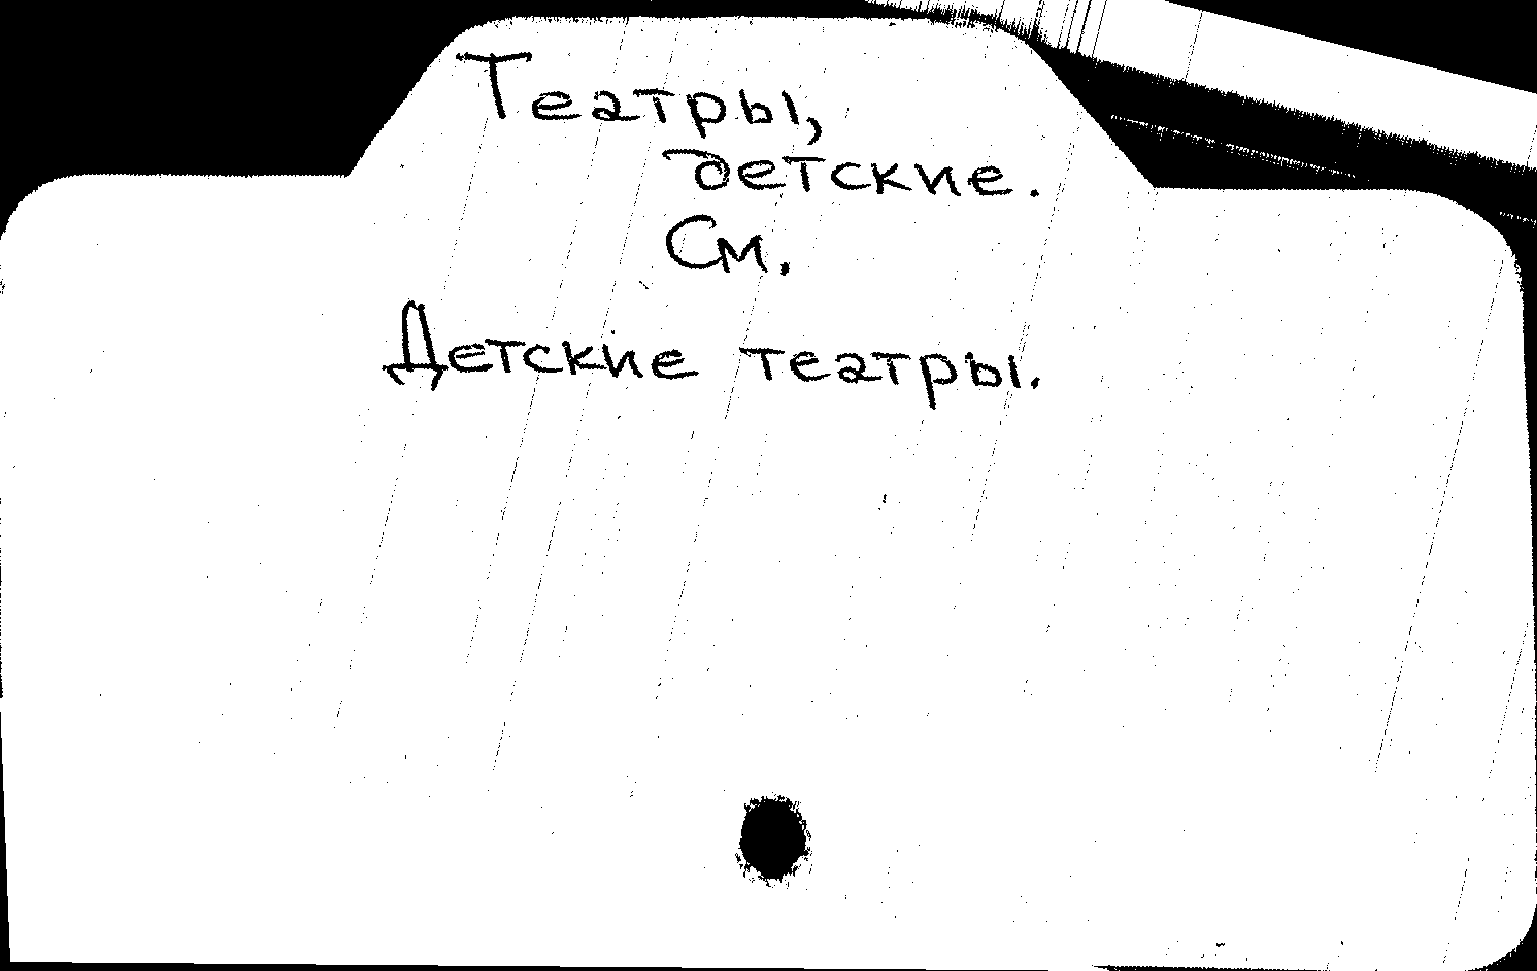 Театры,
детские.
См.
Детские театры.